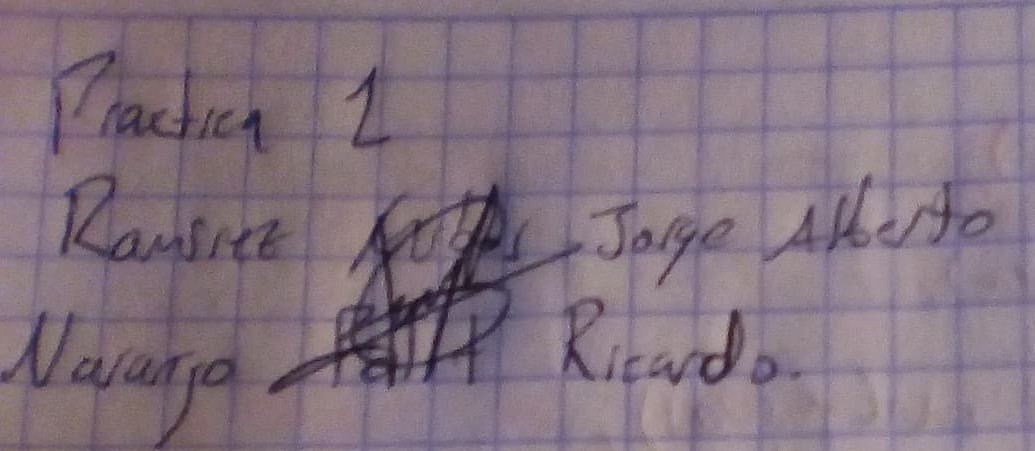 Practica 1
Ramirez Jorge Alberto
Naranjo Ricardo.